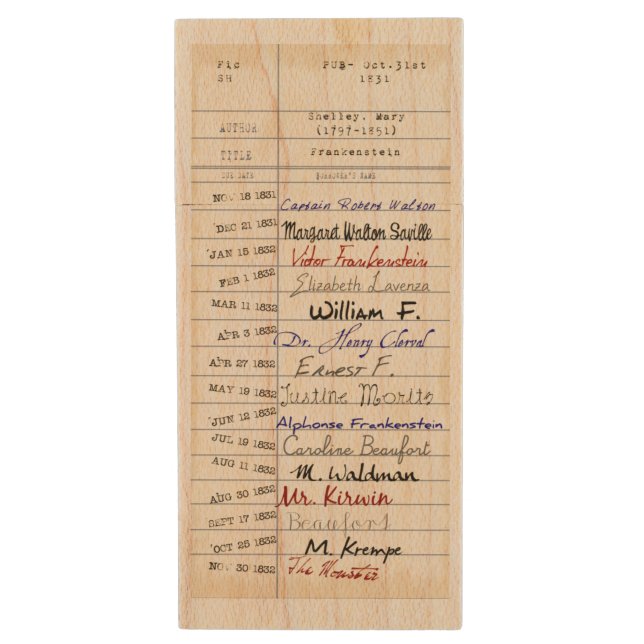 Fic PUB- Oct.31st
SH 1831
Shelley, Mary
AUTHOR (1797-1851)
TITLE Frankenstein
DUE DATE BORROWER'S NAME
NOV 18 1831 Captain Robert Walton
DEC 21 1831 Margaret Walton Saville
JAN 15 1832 Victor Frankenstein
FEB 1 1832 Elizabeth Lavenza
MAR 11 1832 William F.
APR 3 1832 Dr. Henry Clerval
APR 27 1832 Ernest F.
MAY 19 1832 Justine Moritz
JUN 12 1832 Alphonse Frankenstein
JUL 19 1832 Caroline Beaufort
AUG 11 1832 M. Waldman
AUG 30 1832 Mr. Kirwin
SEPT 17 1832 Beaufort
OCT 25 1832 M. Krempe
NOV 30 1832 The Monster